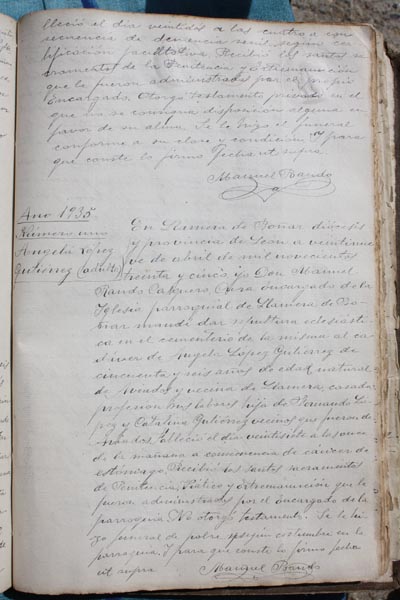 lleció el día veintidós a las cuatro a con
secuencia de demencia senil según cer
tificación facultativa. Recibió los santos sa
cramentos de la Penitencia y Extremaunción
que le fueron administrados por el mismo
Encargado. Otorgó testamento privado en el
que no se consigna disposición alguna en
favor de su alma. Se le hizo el funeral
conforme a su clase y condición. Y para
que conste lo firmo fecha ut supra.
Manuel Bardo
Año 1935
Número uno
Angela López
Gutierrez (adulto)
En Llamera de Boñar, diócesis
y provincia de León a veintinue
ve de abril de mil novecientos
treinta y cinco, yo Don Manuel
Cura encargado de la
Iglesia parroquial de Llamera de Bo
ñar mandé dar sepultura eclesiásti
ca en el cementerio de la misma al ca
dáver de Angela López Gutierrez de
cincuenta y seis años de edad, natural
de y vecina de Llamera, casada
profesión sus labores hija de Fernando Ló
pez y Catalina Gutiérrez vecinos que fueron de
Falleció el día veintisiete a las once
de la mañana a consecuencia de cáncer de
estómago. Recibió los santos sacramentos
de Penitencia, Viático y Extremaunción que le
fueron administrados por el Encargado de la
parroquia. No otorgó testamento. Se le hi
zo funeral de pobre según costumbre en la
parroquia. Y para que conste lo firmo fecha
ut supra Manuel